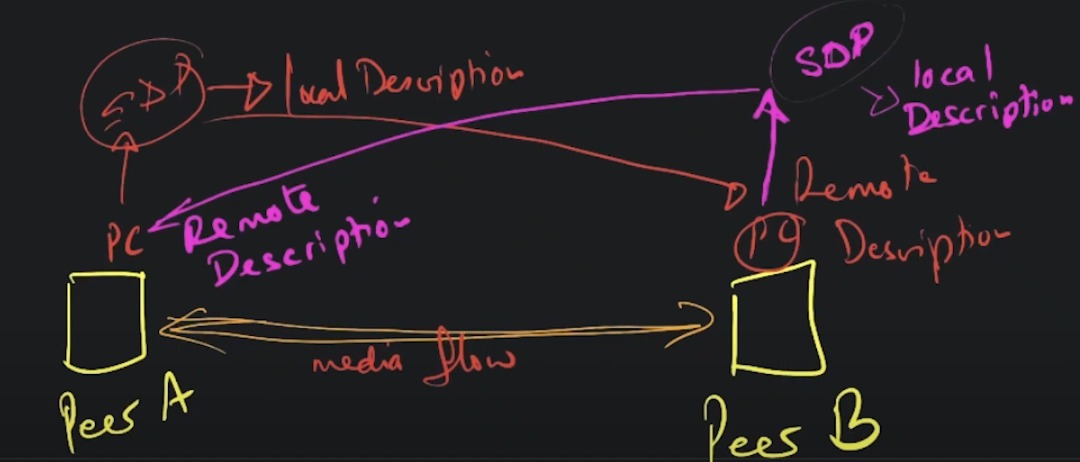 SDP
local Description
SDP
local
Description
Remote
Description
PC
Remote
Description
PC
media flow
Peer A
Peer B